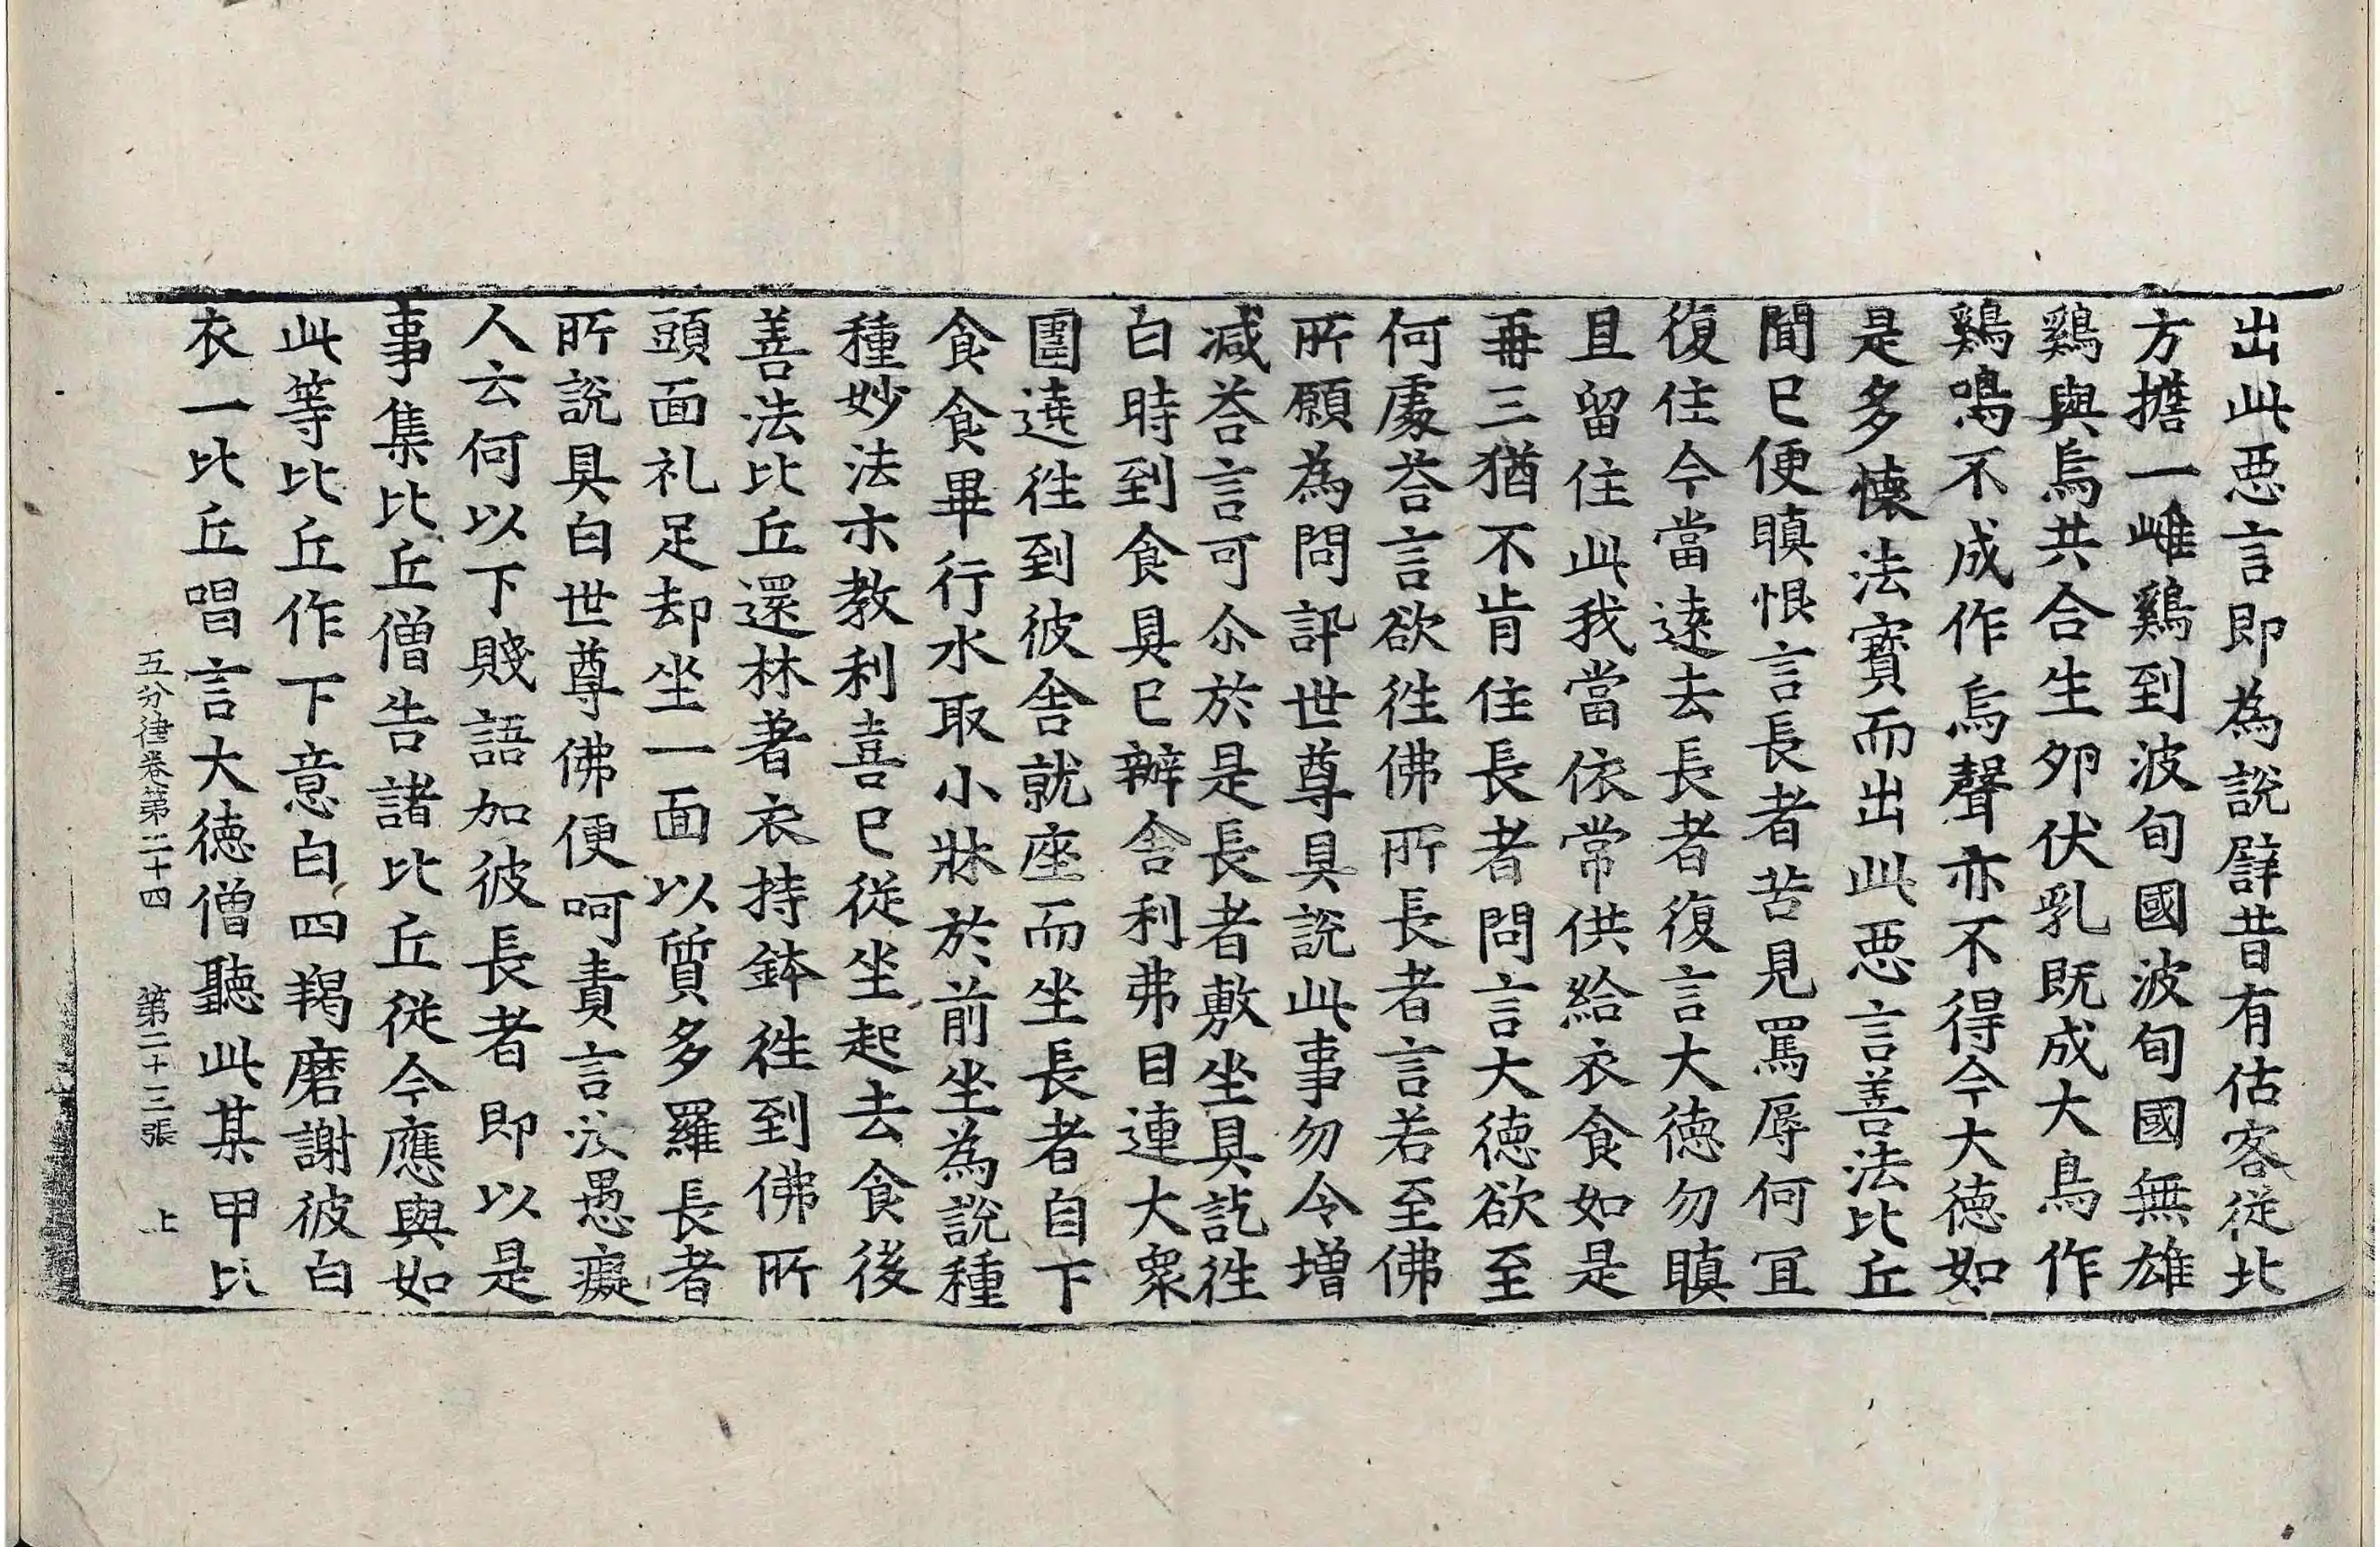 出此惡言即為說譬昔有估客從北
方擔一雌鷄到波旬國波旬國無雄
鷄與烏共合生夘伏乳既成大鳥作
鷄鳴不成作烏聲亦不得今大德如
是多懷法寶而出此惡言善法比丘
聞已便瞋恨言長者苦見罵辱何冝
復住今當遠去長者復言大德勿瞋
且留住此我當依常供給衣食如是
再三猶不肯住長者問言大德欲至
何處荅言欲往佛所長者言若至佛
所願為問訊世尊具說此事勿令增
减荅言可尒於是長者敷坐具訖往
白時到食具已辦舍利弗目連大衆
圍遶往到彼舍就座而坐長者自下
食食畢行水取小牀於前坐為說種
種妙法示教利喜已從坐起去食後
善法比丘還林著衣持鉢往到佛所
頭面礼足却坐一面以質多羅長者
所說具白世尊佛便呵責言汝愚癡
人云何以下賤語加彼長者即以是
事集比丘僧告諸比丘從今應與如
此等比丘作下意白四羯磨謝彼白
衣一比丘唱言大德僧聽此某甲比
五分律卷第二十四 第二十三張 上